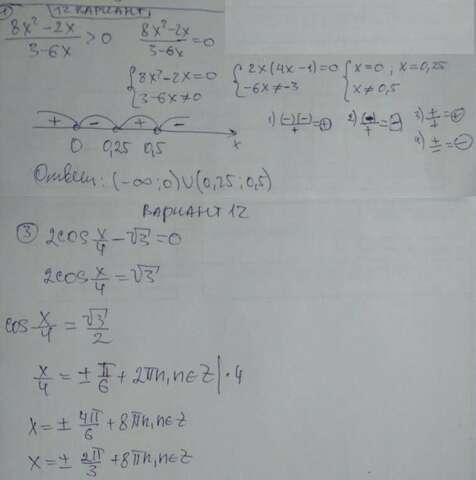 ① 12 ВАРИАНТ.
(8x² - 2x)/(3 - 6x) > 0 (8x² - 2x)/(3 - 6x) = 0
{8x² - 2x = 0 {2x(4x - 1) = 0 {x = 0; x = 0,25
{3 - 6x ≠ 0 {-6x ≠ -3 {x ≠ 0,5
+ - + -
0 0,25 0,5 x
1) (-)(-)/+ = + 2) (-)/+ = - 3) +/+ = +
4) +/- = -
Ответ: (-∞; 0) ∪ (0,25; 0,5)
ВАРИАНТ 12
③ 2cos x/4 - √3 = 0
2cos x/4 = √3
cos x/4 = √3/2
x/4 = ± π/6 + 2πn, n∈Z | · 4
x = ± 4π/6 + 8πn, n∈Z
x = ± 2π/3 + 8πn, n∈Z